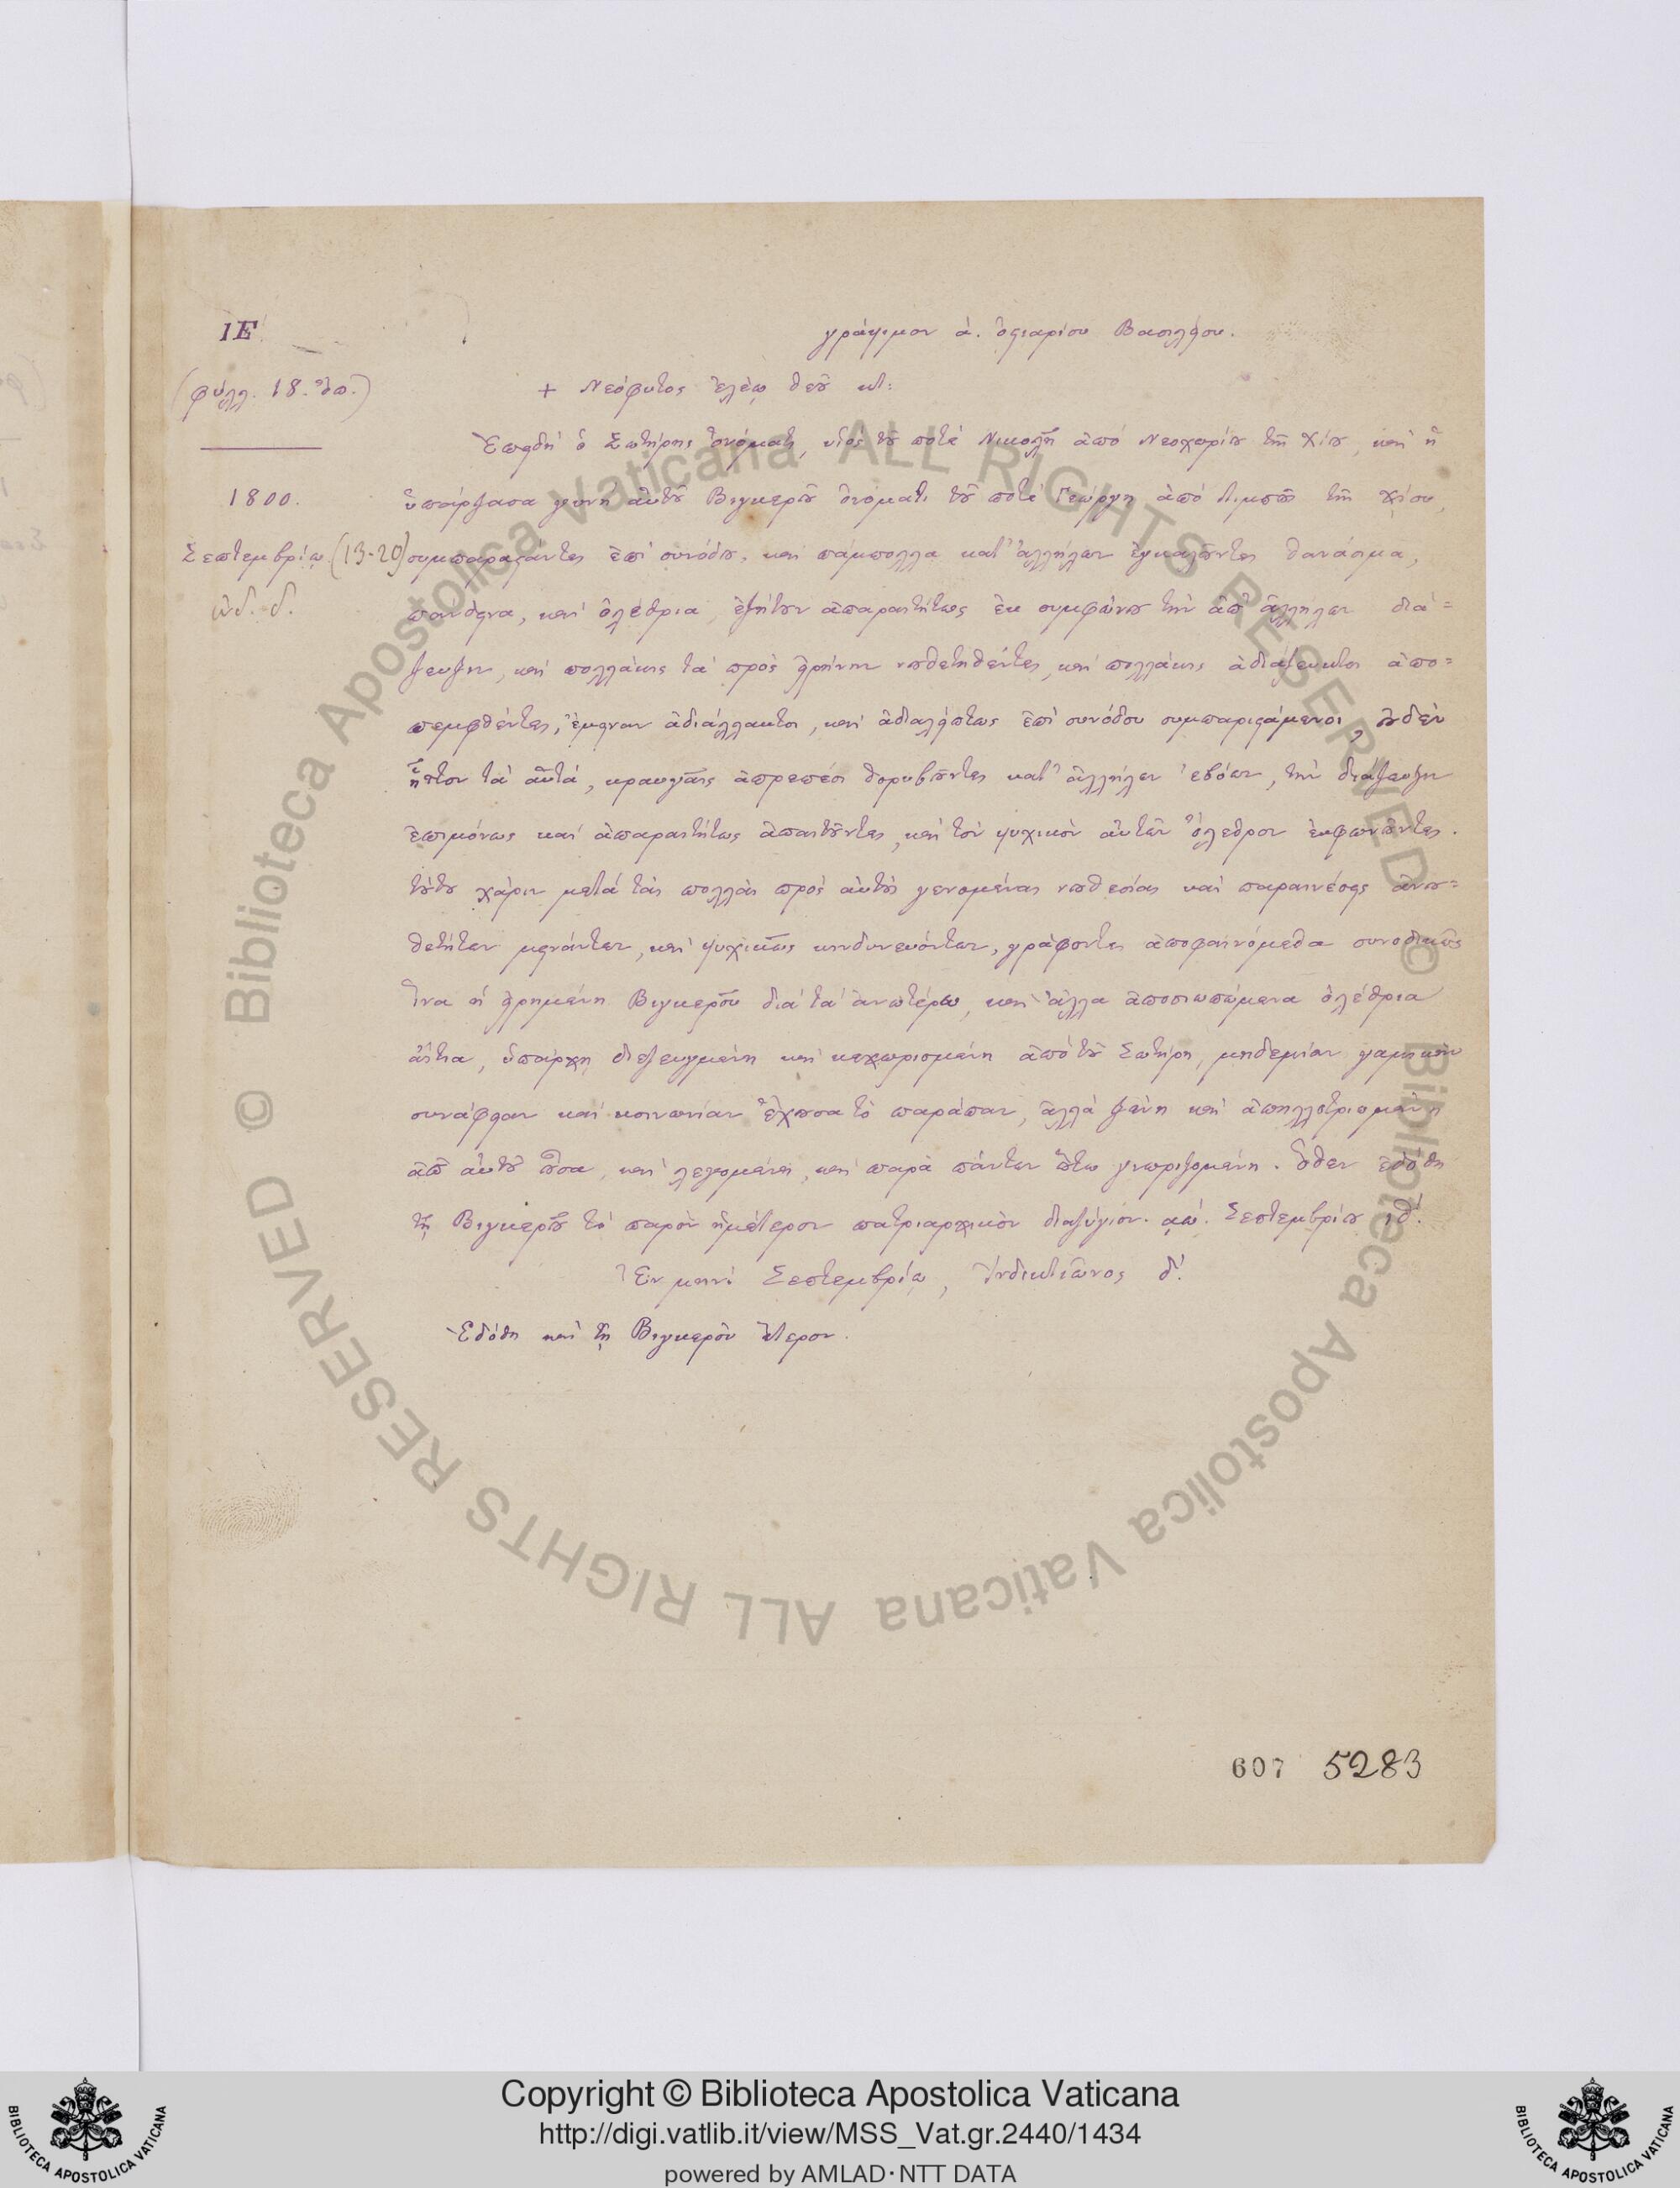 ΙΕ´.
γράψιμον ἀ. ὀστιαρίου Βασιλείου.
(φύλλ. 18. ὄπ.)
+ Νεόφυτος ἐλέῳ θεοῦ κτ:
Ἐπειδὴ ὁ Σωτήρης ὀνόματι, υἱὸς τοῦ ποτὲ Νικολῆ ἀπὸ Νεοχωρίου τῆς Χίου, καὶ ἡ
1800.
ὑπάρξασα γυνὴ αὐτοῦ Βιγκεροῦ ὀνόματι τοῦ ποτὲ Γεώργη ἀπὸ Λιμποῦς τῆς Χίου,
Σεπτεμβρίῳ (13-20)
συμπαραστάντες ἐπὶ συνόδου, καὶ πάμπολλα κατ' ἀλλήλων ἐγκαλοῦντες θανάσιμα,
ἰνδ. δ.
πάνδεινα, καὶ ὀλέθρια, ἐζήτουν ἀπαραιτήτως ἐκ συμφώνου τὴν ἀπ' ἀλλήλων διά=
ζευξιν, καὶ πολλάκις τὰ πρὸς εἰρήνην νουθετηθέντες, καὶ πολλάκις ἀδιάζευκτοι ἀπο=
πεμφθέντες, ἔμειναν ἀδιάλλακτοι, καὶ ἀδιαλείπτως ἐπὶ συνόδου συμπαριστάμενοι, οὐδὲν
ἧττον τὰ αὐτὰ, κραυγαῖς ἀπρεπέσι θορυβοῦντες κατ' ἀλλήλων ἐβόων, τὴν διάζευξιν
ἐπιμόνως καὶ ἀπαραιτήτως ἀπαιτοῦντες, καὶ τὸν ψυχικὸν αὐτῶν ὄλεθρον ἐκφωνοῦντες.
τούτου χάριν μετὰ τὰς πολλὰς πρὸς αὐτοὺς γενομένας νουθεσίας καὶ παραινέσεις ἀνου=
θετήτων μεινάντων, καὶ ψυχικῶς κινδυνευόντων, γράφοντες ἀποφαινόμεθα συνοδικῶς
ἵνα ἡ εἰρημένη Βιγκεροῦ διὰ τὰ ἀνωτέρω, καὶ ἄλλα ἀποσιωπώμενα ὀλέθρια
αἴτια, ὑπάρχῃ διεζευγμένη καὶ κεχωρισμένη ἀπὸ τοῦ Σωτήρη, μηδεμίαν γαμικὴν
συνάφειαν καὶ κοινωνίαν ἔχουσα τὸ παράπαν, ἀλλὰ ξένη καὶ ἀπηλλοτριωμένη
ἀπ' αὐτοῦ οὖσα, καὶ λεγομένη, καὶ παρὰ πάντων οὕτω γνωριζομένη. ὅθεν ἐδόθη
τῇ Βιγκεροῦ τὸ παρὸν ἡμέτερον πατριαρχικὸν διαζύγιον. αω´. Σεπτεμβρίου ιδ´.
Ἐν μηνὶ Σεπτεμβρίῳ, Ἰνδικτιῶνος δ´.
Ἐδόθη καὶ τῇ Βιγκεροῦ ἕτερον.
607 5283
© Biblioteca Apostolica Vaticana ALL RIGHTS RESERVED © Biblioteca Apostolica Vaticana ALL RIGHTS RESERVED
Copyright © Biblioteca Apostolica Vaticana
http://digi.vatlib.it/view/MSS_Vat.gr.2440/1434
powered by AMLAD·NTT DATA
BIBLIOTECA APOSTOLICA VATICANA
BIBLIOTECA APOSTOLICA VATICANA